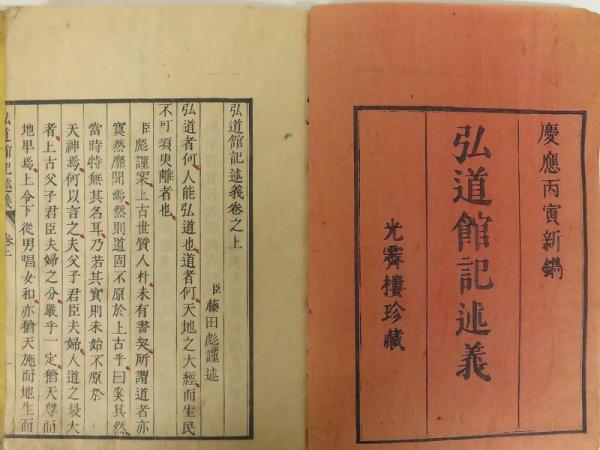 慶應丙寅新鐫
弘道館記述義
光霽樓珍藏
弘道館記述義卷之上
臣藤田彪謹述
弘道者何人能弘道也道者何天地之大經而生民
不可須臾離者也
臣彪謹案上古世質人朴未有書契所謂道者亦
寞然靡聞焉然則道固不原於上古乎曰奚其然
當時特無其名耳乃若其實則未始不原於
天神焉何以言之夫父子君臣夫婦人道之最大
者上古父子君臣夫婦之分嚴乎一定猶天尊而
地卑焉上令下從男唱女和亦猶天施而地生而
弘道館記述義